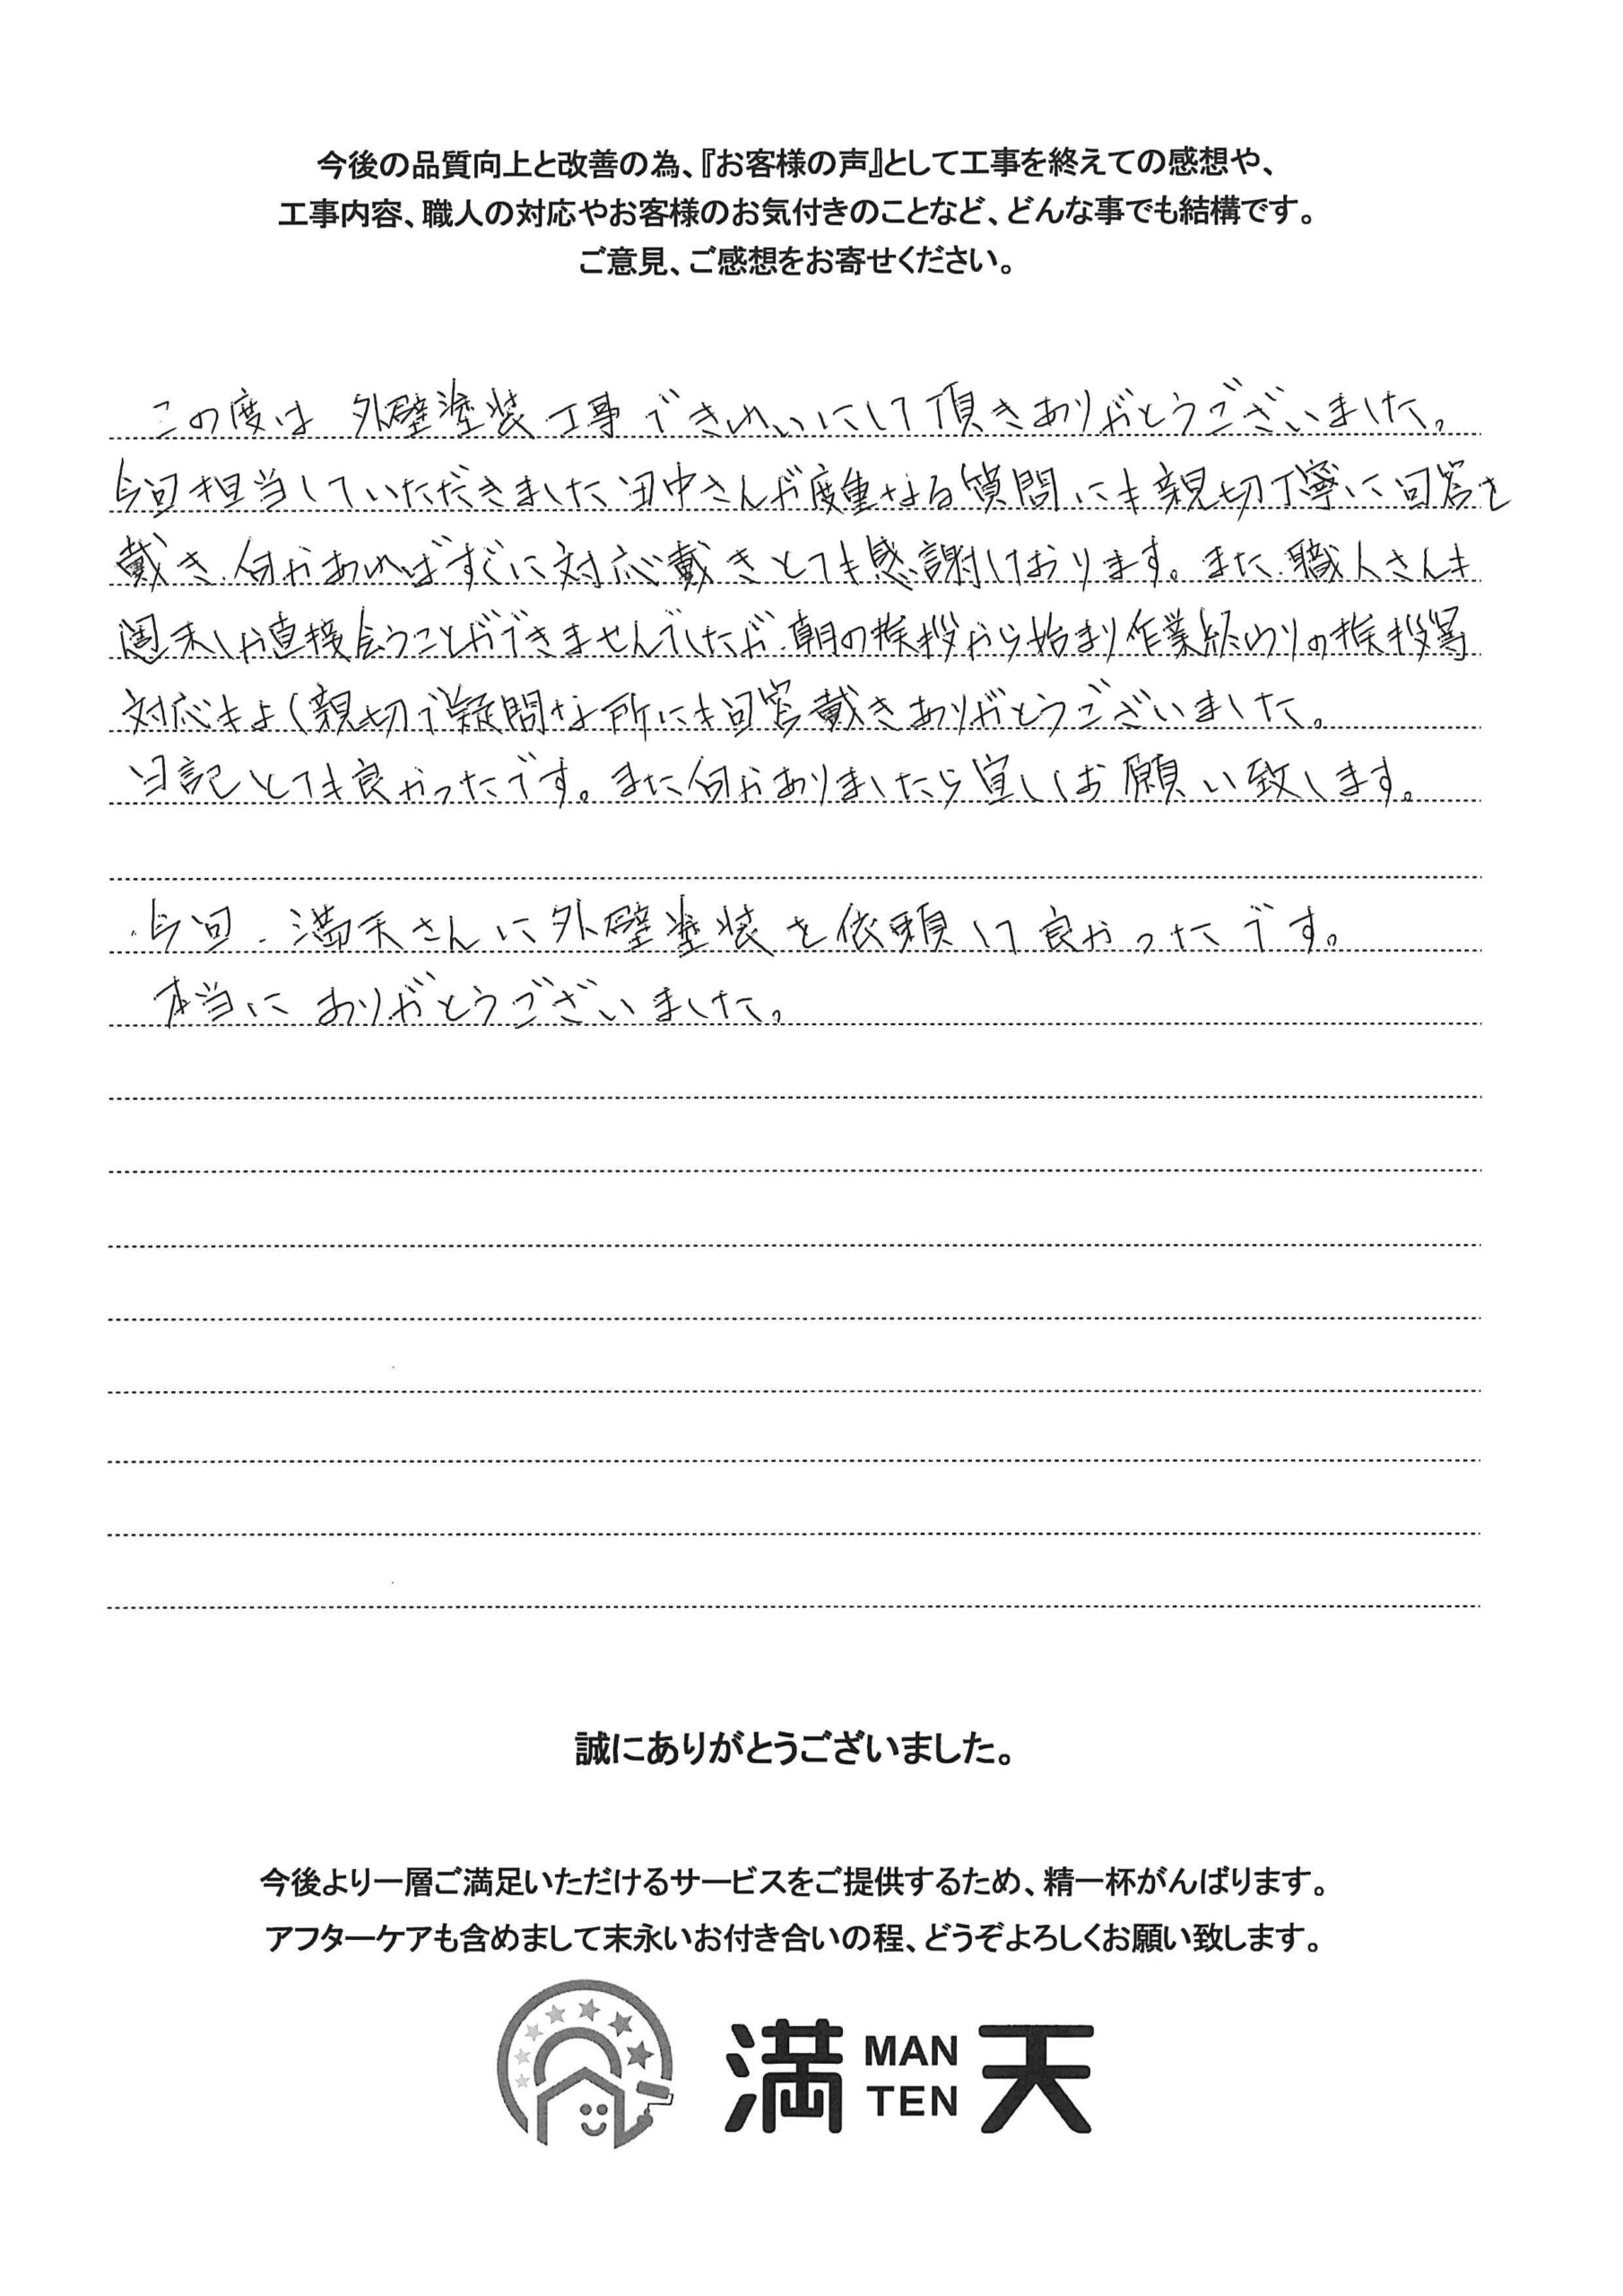 今後の品質向上と改善の為、『お客様の声』として工事を終えての感想や、
工事内容、職人の対応やお客様のお気付きのことなど、どんな事でも結構です。
ご意見、ご感想をお寄せください。
この度は 外壁塗装工事できれいにして頂きありがとうございました。
今回担当していただきました田中さんが度重なる質問にも親切丁寧に回答を
戴き、何かあればすぐに対応戴きとても感謝しております。また、職人さんも
週末しか直接会うことができませんでしたが、朝の挨拶から始まり作業終わりの挨拶等
対応もよく親切で疑問な所にも回答戴きありがとうございました。
日記とても良かったです。また何かありましたら宜しくお願い致します。
今回、満天さんに外壁塗装を依頼して良かったです。
本当にありがとうございました。
誠にありがとうございました。
今後より一層ご満足いただけるサービスをご提供するため、精一杯がんばります。
アフターケアも含めまして末永いお付き合いの程、どうぞよろしくお願い致します。
満 MAN TEN 天